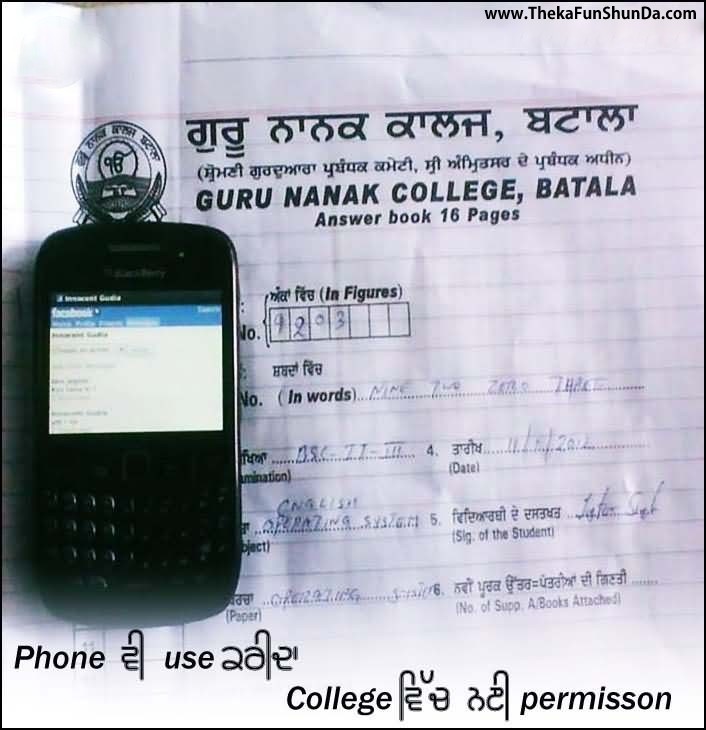 www.ThekaFunShunDa.com
ਗੁਰੂ ਨਾਨਕ ਕਾਲਜ ਬਟਾਲਾ
ੴ
ਗੁਰੂ ਨਾਨਕ ਕਾਲਜ, ਬਟਾਲਾ
(ਸ਼੍ਰੋਮਣੀ ਗੁਰਦੁਆਰਾ ਪ੍ਰਬੰਧਕ ਕਮੇਟੀ, ਸ੍ਰੀ ਅੰਮ੍ਰਿਤਸਰ ਦੇ ਪ੍ਰਬੰਧਕ ਅਧੀਨ)
GURU NANAK COLLEGE, BATALA
Answer book 16 Pages
BlackBerry
Innocent Gudia
facebook
Home Profile Friends
Innocent Gudia
ਅੰਕਾਂ ਵਿੱਚ (In Figures)
No. 9203
ਸ਼ਬਦਾਂ ਵਿੱਚ
No. (In words) NINE TWO ZERO THREE
ਖਿਆ BSC-IT-III 4. ਤਾਰੀਖ 2012
mination) (Date)
ENGLISH
OPERATING SYSTEM 5. ਵਿਦਿਆਰਥੀ ਦੇ ਦਸਤਖ਼ਤ
bject) (Sig. of the Student)
ਰਚਾ OPERATING 6. ਨਵੀਂ ਪੂਰਕ ਉੱਤਰ=ਪੱਤਰੀਆਂ ਦੀ ਗਿਣਤੀ
(Paper) (No. of Supp. A/Books Attached)
Phone ਵੀ use ਕਰੀਦਾ
College ਵਿੱਚ ਨੇਣੀ permisson